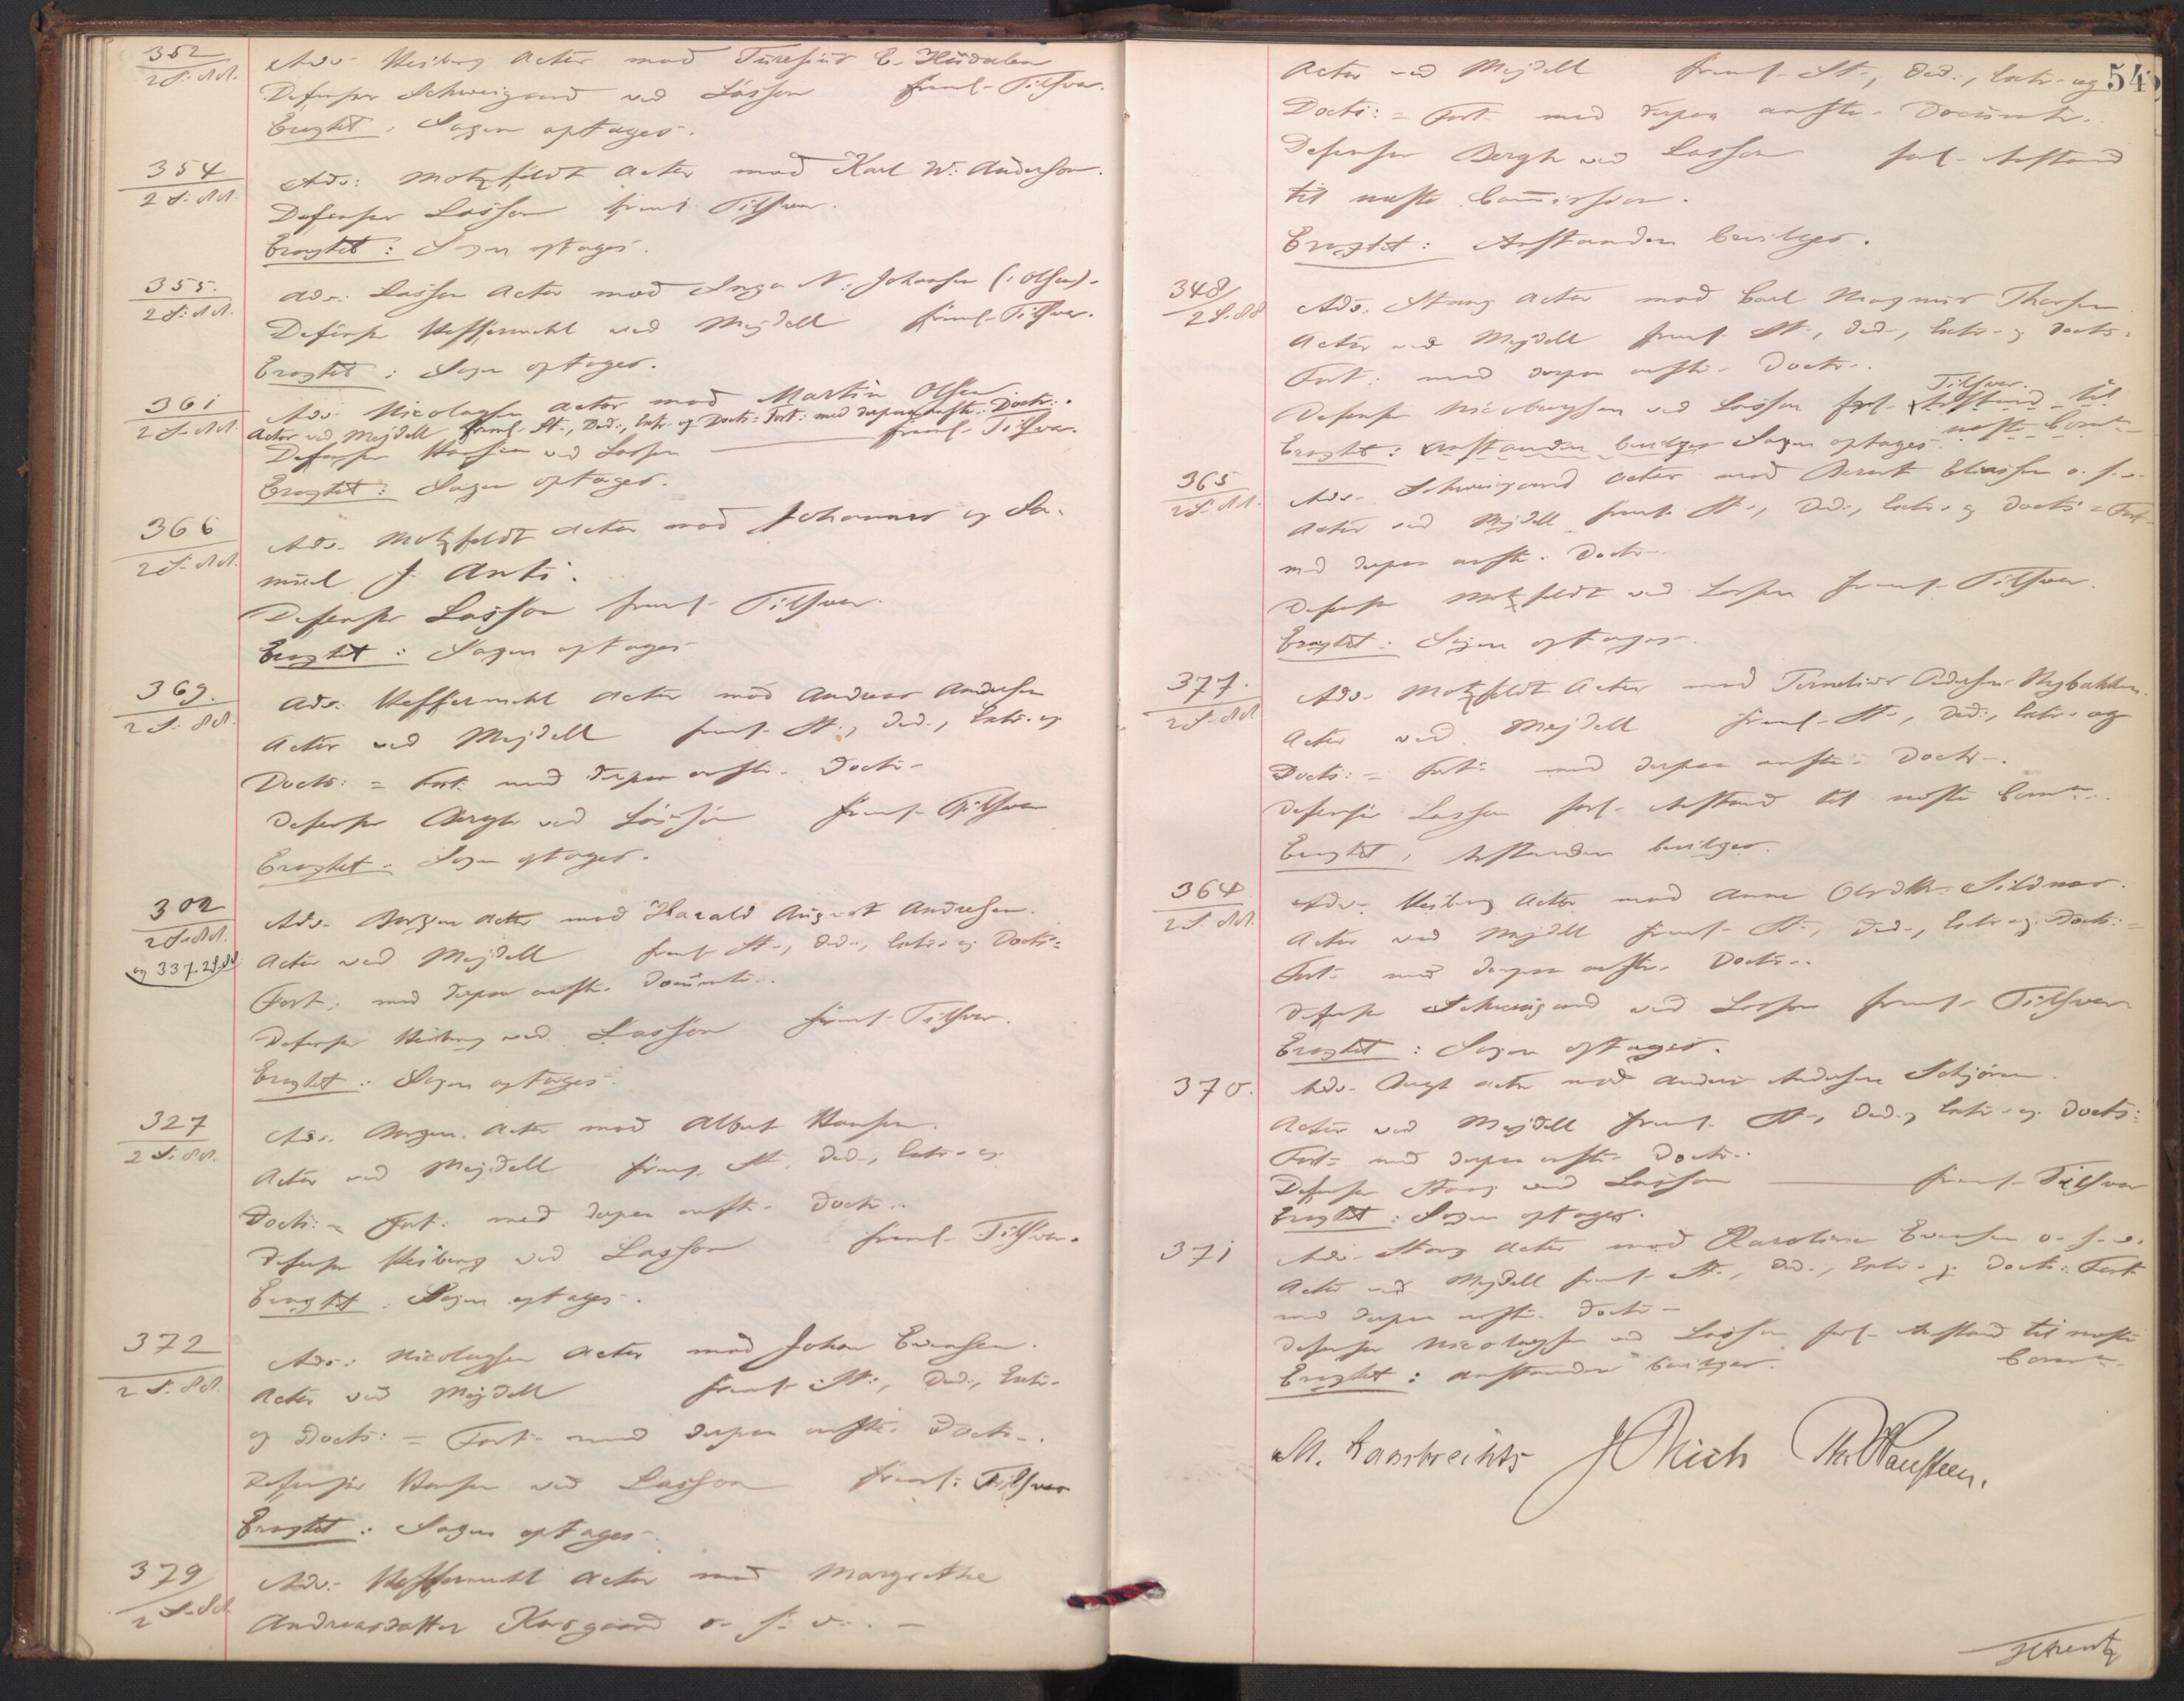 352
2 S. 88.
Adv. Heiberg Actor mod E.
Defensor Schweigaard ved Lasson freml. Tilsvar.
Eragtet: Sagen optages.
354
2 S. 88.
Adv: Motzfeldt Actor mod Karl W. Anderson.
Defensor Lasson freml. Tilsvar.
Eragtet: Sagen optages.
355.
2 S. 88.
Adv. Lasson Actor mod Inga N. Johansen (: Olsen).
Defensor Heffermehl ved Mejdell freml. Tilsvar.
Eragtet: Sagen optages.
361
2 S. 88.
Adv. Nicolaysen Actor mod Martin Olsen
Actor ved Mejdell freml. St., Ded., Extr. og Doctr. = Fort. med derpaa anfte. Doctr.
Defensor Hansen ved Lasson freml. Tilsvar.
Eragtet: Sagen optages.
366
2 S. 88.
Adv. Motzfeldt Actor mod Johannes og Sa-
muel J. Anti.
Defensor Lasson freml. Tilsvar.
Eragtet: Sagen optages
369.
2 S. 88.
Adv. Heffermehl Actor mod Andreas Andersen
Actor ved Mejdell freml. St., Ded., Extr. og
Doctr: = Fort. med derpaa anfte. Doctr.
Defensor Bergh ved Lasson freml. Tilsvar
Eragtet: Sagen optages.
302
2 S. 88.
og 337. 2 S. 88
Adv. Actor mod Harald August Andresen.
Actor ved Mejdell freml. St., Ded., Extr. og Doctr. =
Fort. med derpaa anfte. Documtr.
Defensor Heiberg ved Lasson freml. Tilsvar.
Eragtet: Sagen optages.
327
2 S. 88.
Adv. Actor mod Albert Hansen.
Actor ved Mejdell freml. St., Ded., Extr. og
Doctr: = Fort. med derpaa anfte. Doctr.
Defensor Heiberg ved Lasson freml. Tilsvar.
Eragtet: Sagen optages.
372
2 S. 88.
Adv: Nicolaysen Actor mod Johan Evensen.
Actor ved Mejdell freml. St., Ded., Extr.
og Doctr: = Fort. med derpaa anfte. Doctr.
Defensor Hansen ved Lasson freml. Tilsvar
Eragtet: Sagen optages.
379
2 S. 88
Adv. Heffermehl Actor mod Margrethe
Andreasdatter Korsgaard o. s. v. -
54
Actor ved Mejdell freml. St., Ded., Extr. og
Doctr: = Fort. med derpaa anfte. Documtr.
Defensor Bergh ved Lasson forl. Anstand
til næste Commission.
Eragtet: Anstanden bevilges.
348
2 S. 88
Adv. Stang Actor mod Carl Magnus Thorsen
Actor ved Mejdell freml. St., Ded., Extr. og Doctr. =
Fort. med derpaa anfte. Doctr.
Tilsvar.
Defensor Nicolaysen ved Lasson forl. Anstand til
næste Comm.
Eragtet: Anstanden bevilges Sagen optages.
365
2 S. 88.
Adv. Schweigaard Actor mod Bernt Eliassen o. s. v.
Actor ved Mejdell freml. St., Ded., Extr. og Doctr = Fort.
med derpaa anfte. Doctr.
Defensor Motzfeldt ved Lasson freml. Tilsvar.
Eragtet: Sagen optages.
377.
2 S. 88
Adv. Motzfeldt Actor mod Andersen Nybakken.
Actor ved Mejdell freml. St., Ded., Extr. og
Doctr: = Fort. med derpaa anfte. Doctr.
Defensor Lasson forl. Anstand til næste Comm.
Eragtet: Anstanden bevilges.
364
2 S. 88.
Adv. Heiberg Actor mod Anne
Actor ved Mejdell freml. St., Ded., Extr. og Doctr: =
Fort. med derpaa anfte. Doctr.
Defensor Schweigaard ved Lasson freml. Tilsvar
Eragtet: Sagen optages.
370.
Adv. Bergh Actor mod Anders Andersen
Actor ved Mejdell freml. St., Ded., Extr. og Doctr: =
Fort. med derpaa anfte. Doctr.
Defensor Stang ved Lasson freml. Tilsvar
Eragtet: Sagen optages.
371
Adv. Stang Actor mod Karoline Evensen o. s. v.
Actor ved Mejdell freml. St., Ded., Extr. og Doctr: Fort.
med derpaa anfte. Doctr.
Defensor Nicolaysen ved Lasson forl. Anstand til næste
Comm.
Eragtet: Anstanden bevilges.
M. Lambrechts